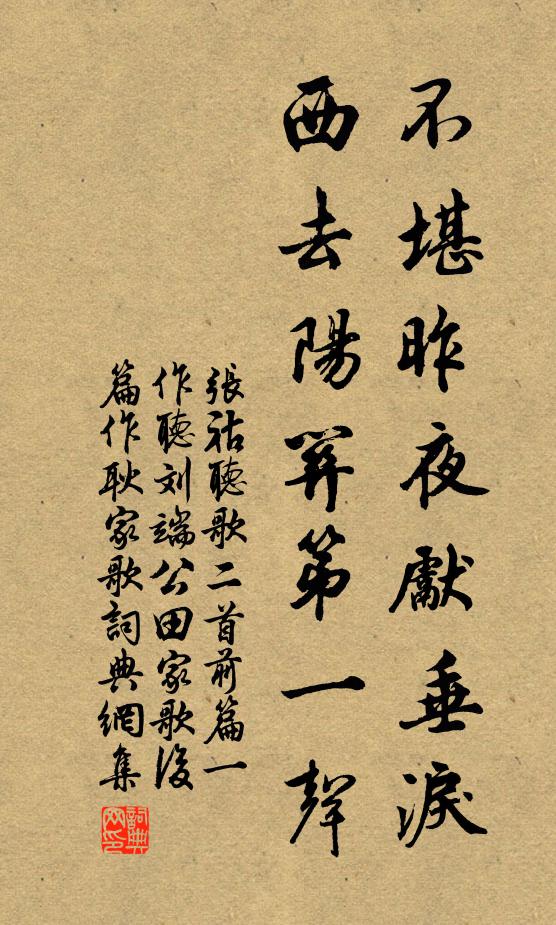 不堪昨夜獻垂淚
西去陽關第一聲
張祜聽歌二首前篇一
作聽刘端公田家歌後
篇作耿家歌詞典網集
詞典
网印